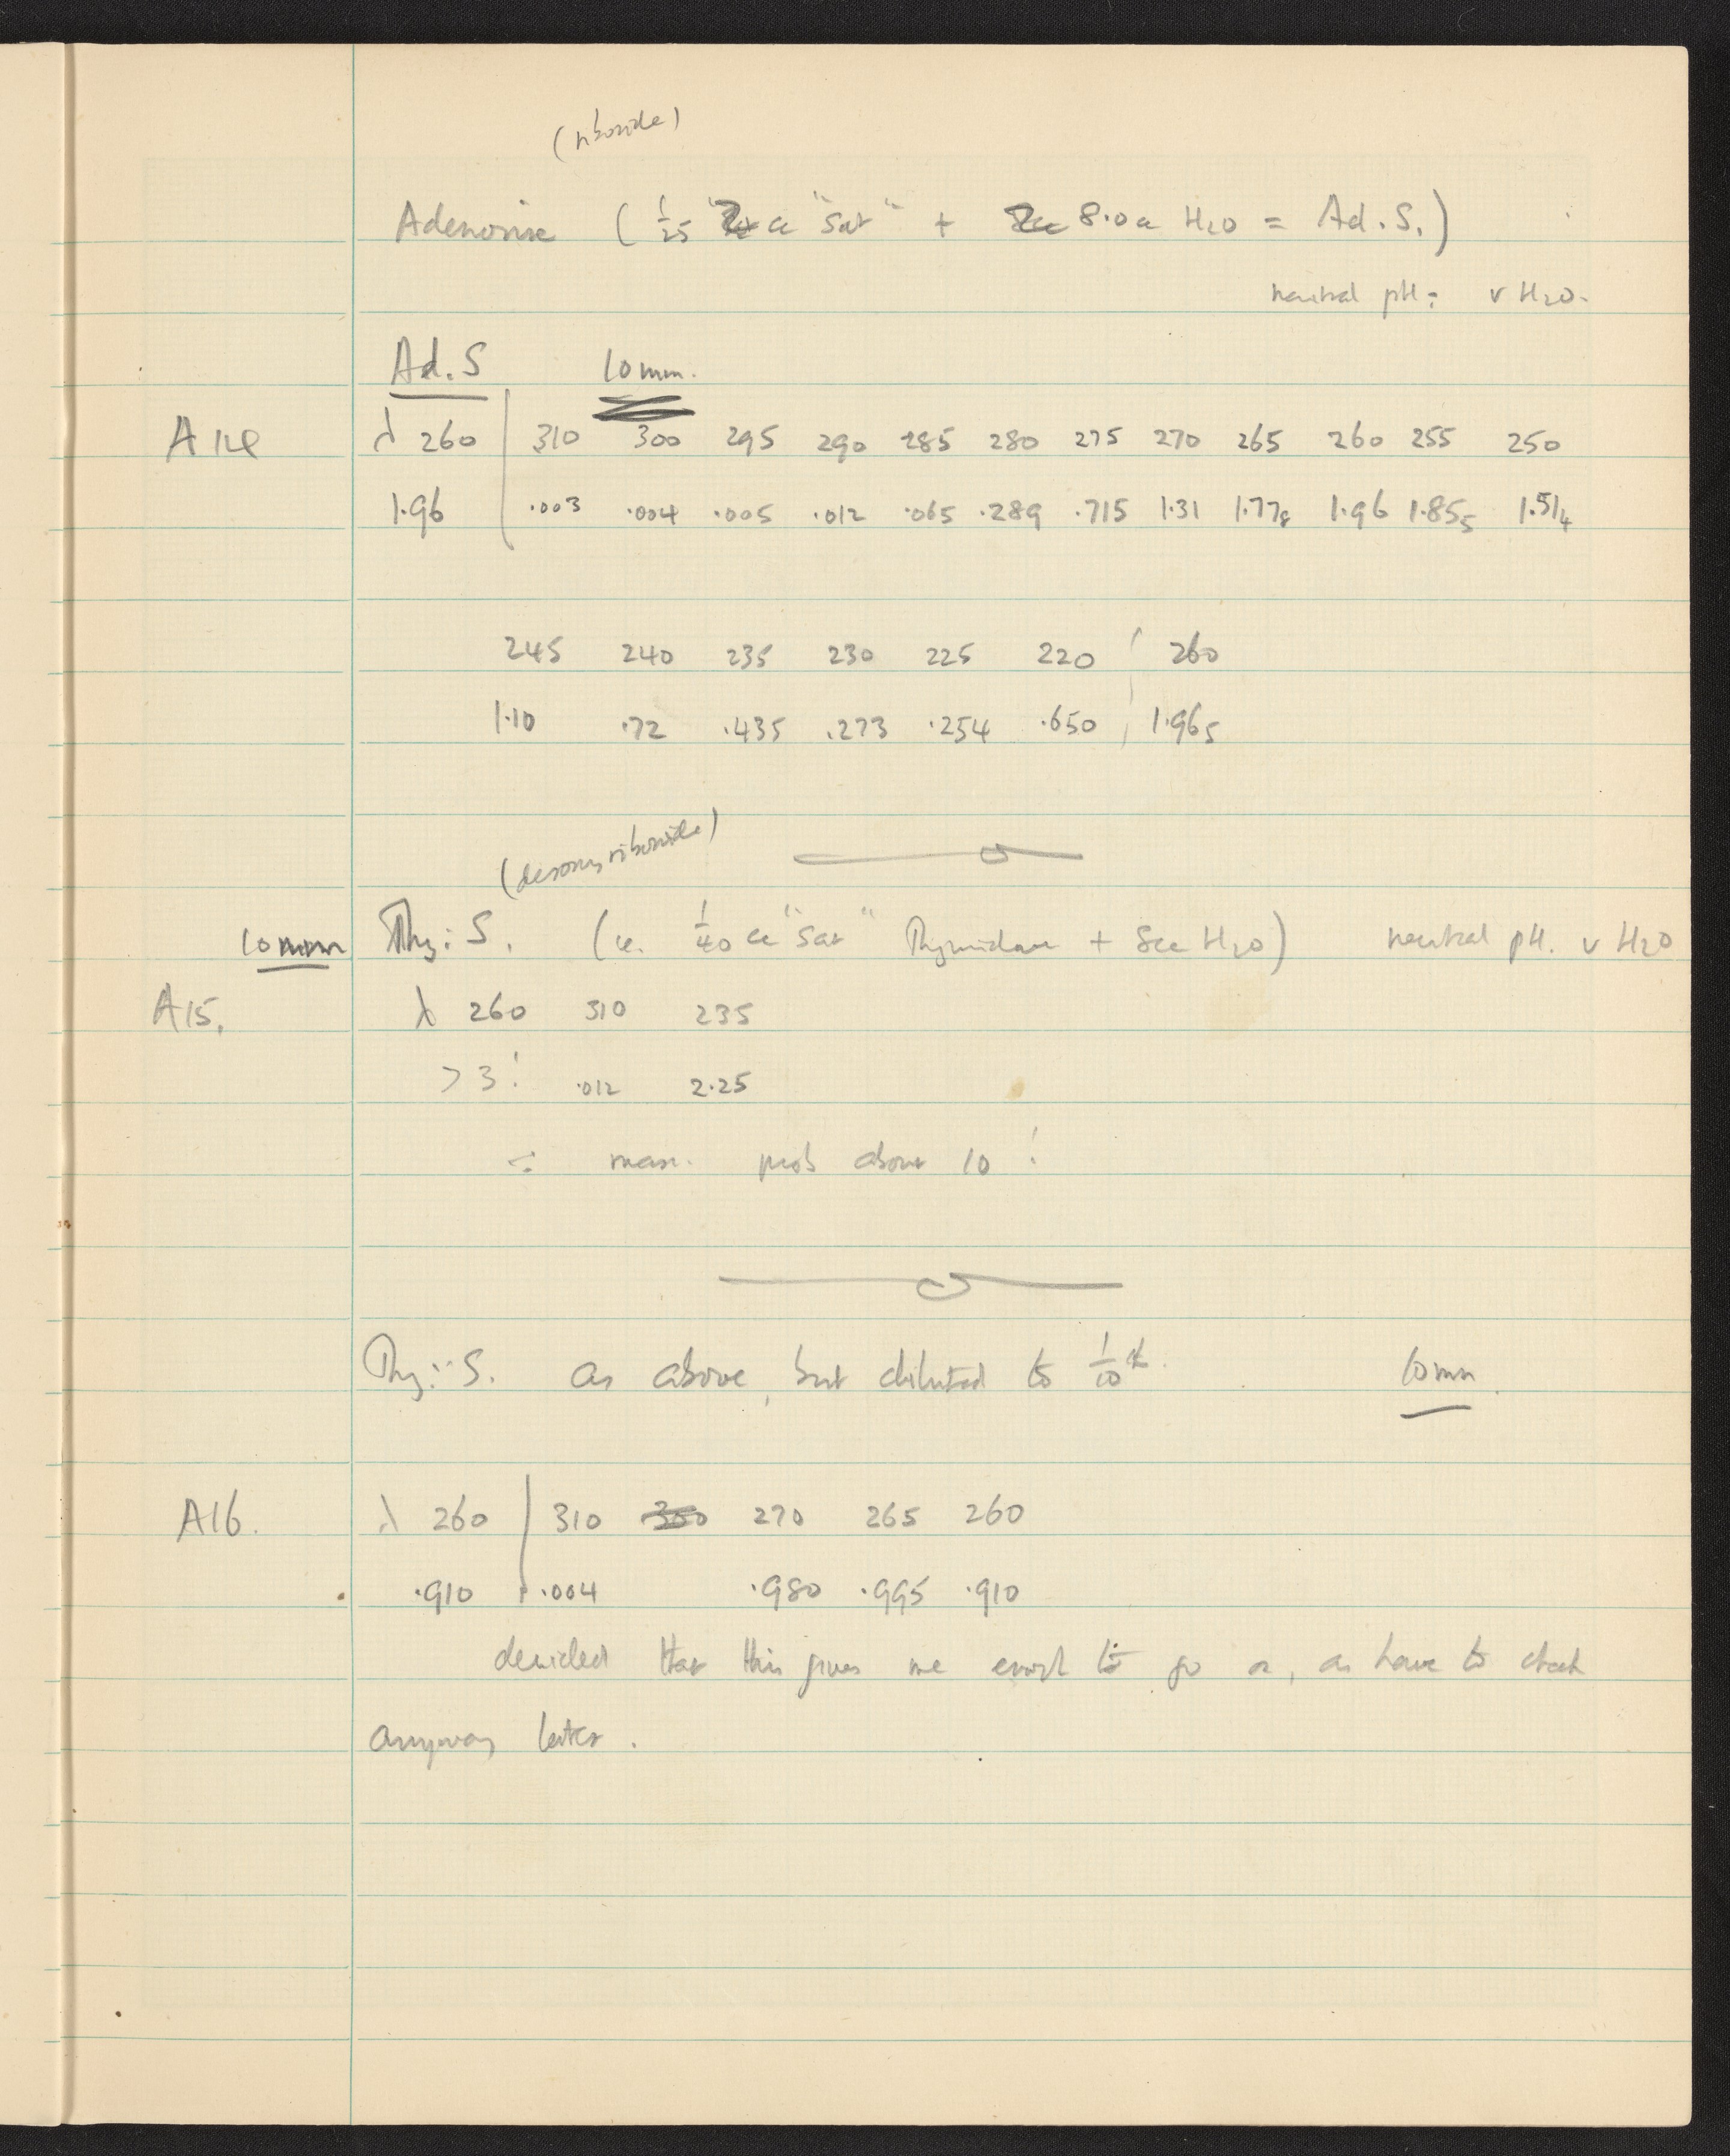 (riboside)
Adenosine ( 1/25 cc "Sat" + 8.0 cc H2O = Ad. S. )
neutral pH : v H2O.
Ad. S 10 mm.
A 14 λ 260 310 300 295 290 285 280 275 270 265 260 255 250
1.96 .003 .004 .005 .012 .065 .289 .715 1.31 1.778 1.96 1.855 1.514
245 240 235 230 225 220 260
1.10 .72 .435 .273 .254 .650 1.965
(desoxyriboside)
10 mm Thy: S. (ie. 1/40 cc "Sat" Thymidine + 8cc H2O) neutral pH. v H2O
A15. λ 260 310 235
> 3! .012 2.25
∴ max. prob about 10 !
Thy: S. as above, but diluted to 1/10 th. 10 mm.
A16. λ 260 310 300 270 265 260
.910 .004 .980 .995 .910
decided that this gives me enough to go on, as have to check
anyway later.